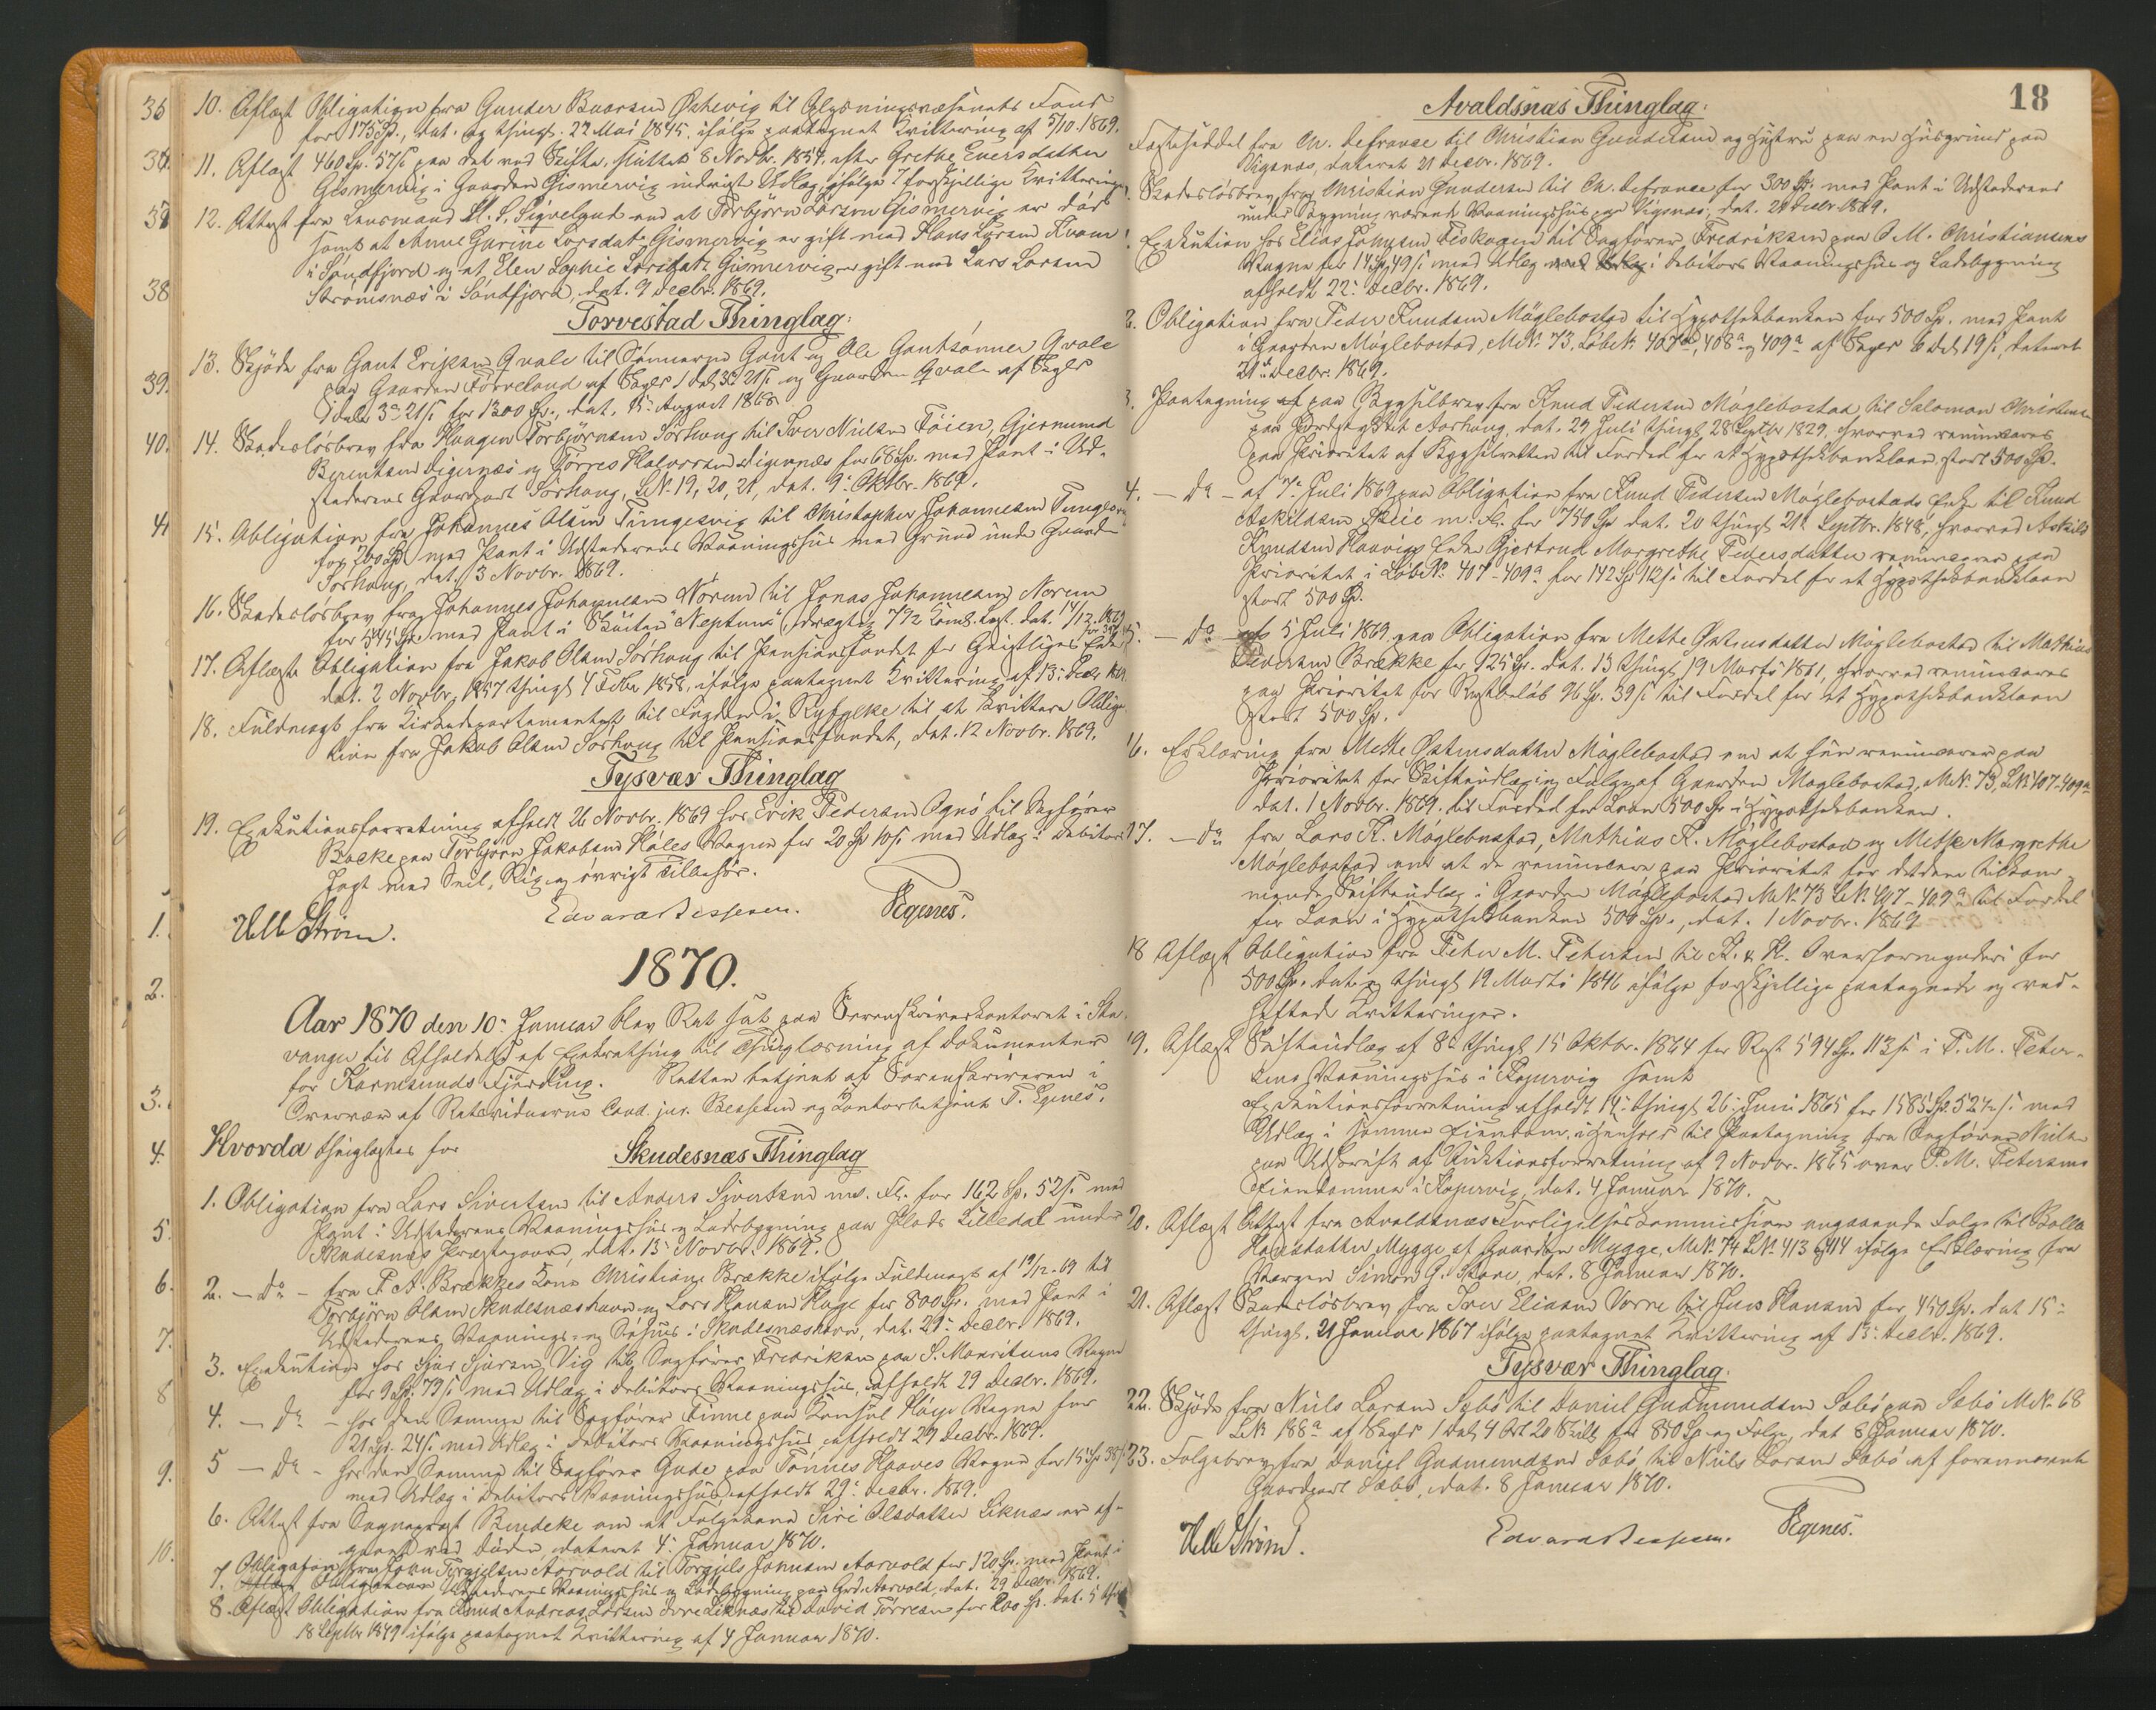 10. Aflæst Obligation fra Gunder Baarsen Østevig til Oplysningsvæsenets Fond
for 175 Sp., dat. og thingl. 22 Mai 1845, ifølge paategnet Kvittering af 5/10. 1869.
11. Aflæst 460 Sp. 57 s paa det ved Skifte, sluttet 8 Novbr. 1854, efter Grethe Eversdatter
Gismervig i Gaarden Gismervig indvigt Udlæg, ifølge 7 forskjellige Kvitteringer
12. Attest fra Lensmand M. S. Sigvelgud om at Torbjørn Larsen Gismervig er død
samt at Anne Gurine Larsdatr. Gismervig er gift med Hans Larsen Kvam
i Søndfjord og at Elen Sophie Larsdatr. Gismervig er gift med Lars Larsen
Strømsnæs i Søndfjord, dat. 9 Decbr. 1869.
Torvestad Thinglag:
13. Skjøde fra Gaut Eriksen Qvale til Sønnerne Gaut og Ole Gautsønner Qvale
paa Gaarden Førreland af Skyld 1 Dal. 3 O 21 s og Gaarden Qvale af Skyld
1 Dal. 3 O 21 s for 1300 Sp., dat. 15 August 1868.
14. Skadesløsbrev fra Haagen Torbjørnsen Sørhoug til Iver Nielsen Føien, Gjermund
Berentsen Digernæs og Tørres Halvorsen Digernæs for 68 Sp. med Pant i Ud-
stederens Gaardpart Sørhaug, LN. 19, 20, 21, dat. 9. Oktbr. 1869.
15. Obligation fra Johannes Olsen Tungesvig til Christopher Johannesen Tungesvig
for 200 Sp. med Pant i Udstederens Vaaningshus med Grund under Gaarden
Sørhaug, dat. 3 Novbr. 1869.
16. Skadesløsbrev fra Johannes Johannesen Norem til Jonas Johannesen Norem
for 545 Sp. med Pant i Skuiten "Neptun", drægtig 7½ Coms. Læst. dat. 14/12. 1869
17. Aflæst Obligation fra Jakob Olsen Sørhaug til Pensionsfondet for Geistliges Enker
dat. 2 Novbr. 1857 thingl. 4 Febr. 1858, ifølge paategnet Kvittering af 13. Decbr. 1869.
18. Fuldmagt fra Kirkedepartementet til Fogden i Ryfylke til at kvittere Obliga-
tion fra Jakob Olsen Sørhaug til Pensionsfondet, dat. 12 Novbr. 1869.
Tysvær Thinglag
19. Exekutionsforretning afholdt 26 Novbr. 1869 hos Erik Pedersen Ognø til Sagfører
Backe paa Torbjørn Jakobsen Høies Vegne for 20 Sp 10 s med Udlæg i Debitors
Jagt med Seil, Rig og øvrigt Tilbehør.
Helle Strøm. Edvard Bessesen. T Egenes.
1870.
Aar 1870 den 10. Januar blev Ret sat paa Sorenskriverkontoret i Sta-
vanger til Afholdelse af Extrathing til Thinglæsning af Dokumenter
for Karmsunds Fjerding. Retten betjent af Sorenskriveren i
Overvær af Retsvidnerne Cand. jur. Bessesen og Kontorbetjent T. Egenes.
Hvorda thinglæstes for
Skudesnæs Thinglag
1. Obligation fra Lars Sivertsen til Anders Sivertsen m. Fl. for 162 Sp. 52 s med
Pant i Udstederens Vaaningshus og Ladebygning paa Plads Lilledal under
Skudesnæs Præstegaard, dat. 15 Novbr. 1869.
2. — Do — fra P. A. Brækkes Kone Christiane Brække ifølge Fuldmagt af 19/12. 69 til
Torbjørn Olsen Skudesnæshavn og Lars Hansen Hage for 800 Sp. med Pant i
Udstederens Vaanings- og Søhus i Skudesnæshavn, dat. 21. Decbr. 1869.
3. Exekution hos Sjur Sjursen Vig til Sagfører Fredriksen paa S. Mauritzens Vegne
for 9 Sp. 79 s med Udlæg i Debitors Vaaningshus, afholdt 29 Decbr. 1869.
4. — Do — hos den Samme til Sagfører Finne paa Konsul Høies Vegne for
21 Sp. 24 s med Udlæg i Debitors Vaaningshus, afholdt 29 Decbr. 1869.
5 — Do — hos den Samme til Sagfører Gude paa Tønnes Haaves Vegne for 15 Sp 38 s
med Udlæg i Debitors Vaaningshus afholdt 29. Decbr. 1869.
6. Attest fra Sogneprest Bendeke om at Følgekone Siri Olsdatter Liknæs er af-
gaaet ved Døden, dateret 4. Januar 1870.
7. Obligation fra Joan Torgilsen Aarvold til Torgils Joansen Aarvold for 120 Sp. med Pant i
Udstederens Vaaningshus og Ladebygning paa Grd. Aarvold, dat. 29 Decbr. 1869.
8. Aflæst Obligation fra Knud Andreas Larsen Øvre Liknæs til David Tørresen for 200 Sp. dat. 5 thingl.
18 Septbr. 1849 ifølge paategnet Kvittering af 4 Januar 1870.
18
Avaldsnæs Thinglag:
Festeseddel fra Ch. Defrance til Christian Gundersen og Hustru paa en Husgrund paa
Vigsnæs, dateret 21 Decbr. 1869.
Skadesløsbrev fra Christian Gundersen til Ch. Defrance for 300 Sp. med Pant i Udstederens
under Bygning værende Vaaningshus paa Vigsnæs, dat. 21 Decbr. 1869.
Exekution hos Elias Johnsen Fiskaaen til Sagfører Fredriksen paa O. M. Christiansens
Vegne for 14 Sp 49 s med Udlæg i Debitors Vaaningshus og Ladebygning
afholdt 22. Decbr. 1869.
2. Obligation fra Peder Knudsen Møglebostad til Hypothekbanken for 500 Sp. med Pant
i Gaarden Møglebostad, MN. 73, Løbe N. 407a, 408a og 409a af Skyld 6 Ort 19 s, dateret
21. Decbr. 1869.
3. Paategning paa Bygselbrev fra Knud Pedersen Møglebostad til Salomon Christensen
paa Jordstykket Aarhaug, dat. 29 Juli thingl. 28 Septbr 1829, hvorved renunceres
paa Prioritet af Bygselretten til Fordel for et Hypothekbanklaan, stort 500 Sp.
4. — Do — af 7. Juli 1869 paa Obligation fra Knud Pedersen Møglebostads Enke til Knud
Askildsen Skeie m. Fl. for 750 Sp dat. 20 thingl. 21. Septbr. 1848, hvorved Askild
Knudsen Haavigs Enke Gjertrud Margrethe Pedersdatter renuncerer paa
Prioritet i LøbeN. 407-409a for 142 Sp 112 s til Fordel for et Hypothekbanklaan
stort 500 Sp.
5. — Do — af 5 Juli 1869 paa Obligation fra Methe Østensdatter Møglebostad til Mathias
Pedersen Brække for 125 Sp. dat. 13 thingl. 19 Marts 1861, hvorved renunceres
paa Prioritet for Restbeløb 96 Sp. 39 s til Fordel for et Hypothekbanklaan
stort 500 Sp.
16. Erklæring fra Methe Østensdatter Møglebostad om at hun renuncerer paa
Prioritet for Skifteudlæg i Følge af Gaarden Møglebostad, MN. 73, LN 407-409a
dat. 1 Novbr. 1869. til Fordel for Laan 500 Sp i Hypothekbanken.
17. — Do fra Lars K. Møglebostad, Mathias K. Møglebostad og Methe Margrethe
Møglebostad om at de renuncere paa Prioritet for det dem tilkom-
mende Skifteudlæg i Gaarden Møglebostad MN. 73 LN. 407-409a til Fordel
for Laan i Hypothekbanken 500 Sp., dat. 1 Novbr. 1869
18 Aflæst Obligation fra Peter M. Petersen til K. & K. Overformynderi for
500 Sp. dat. og thingl. 19 Marts 1846 ifølge forskjellige paategnede og ved-
heftede Kvitteringer.
19. Aflæst Skifteudlæg af 8. thingl. 15 Oktbr. 1864 for Rest 594 Sp. 113 s i P. M. Peter-
sens Vaaningshus i Kopervig samt
Exekutionsforretning afholdt 14. thingl. 26. Juni 1865 for 1585 Sp. 52½ s. med
Udlæg i samme Eiendom, i Henhold til Paategning fra Sagfører Nielsen
paa Udskrift af Auktionsforretning af 9 Novbr. 1865 over P. M. Petersens
Eiendomme i Kopervig, dat. 4 Januar 1870.
20. Aflæst Attest fra Avaldsnæs Forligelseskommission angaaende Følge til Bolla
Hansdatter Mygge af Gaarden Mygge, MN. 74 LN. 413 og 414 ifølge Erklæring fra
Værgen Simon G. Skare, dat. 8 Januar 1870.
21. Aflæst Skadesløsbrev fra Iver Eliasen Vorre til Jens Hansen for 450 Sp. dat 15.
thingl. 21 Januar 1867 ifølge paategnet Kvittering af 13. Decbr. 1869.
Tysvær Thinglag.
22. Skjøde fra Niels Larsen Sæbø til Daniel Gudmundsen Sæbø paa Sæbø MN. 68
LN 188a af Skyld 1 Dal. 4 Ort 20 Skill. for 850 Sp og Følge, dat 8 Januar 1870.
23. Følgebrev fra Daniel Gudmundsen Sæbø til Niels Larsen Sæbø af forannævnte
Gaardpart Sæbø, dat. 8 Januar 1870.
Helle Strøm. Edvard Bessesen. T Egenes.